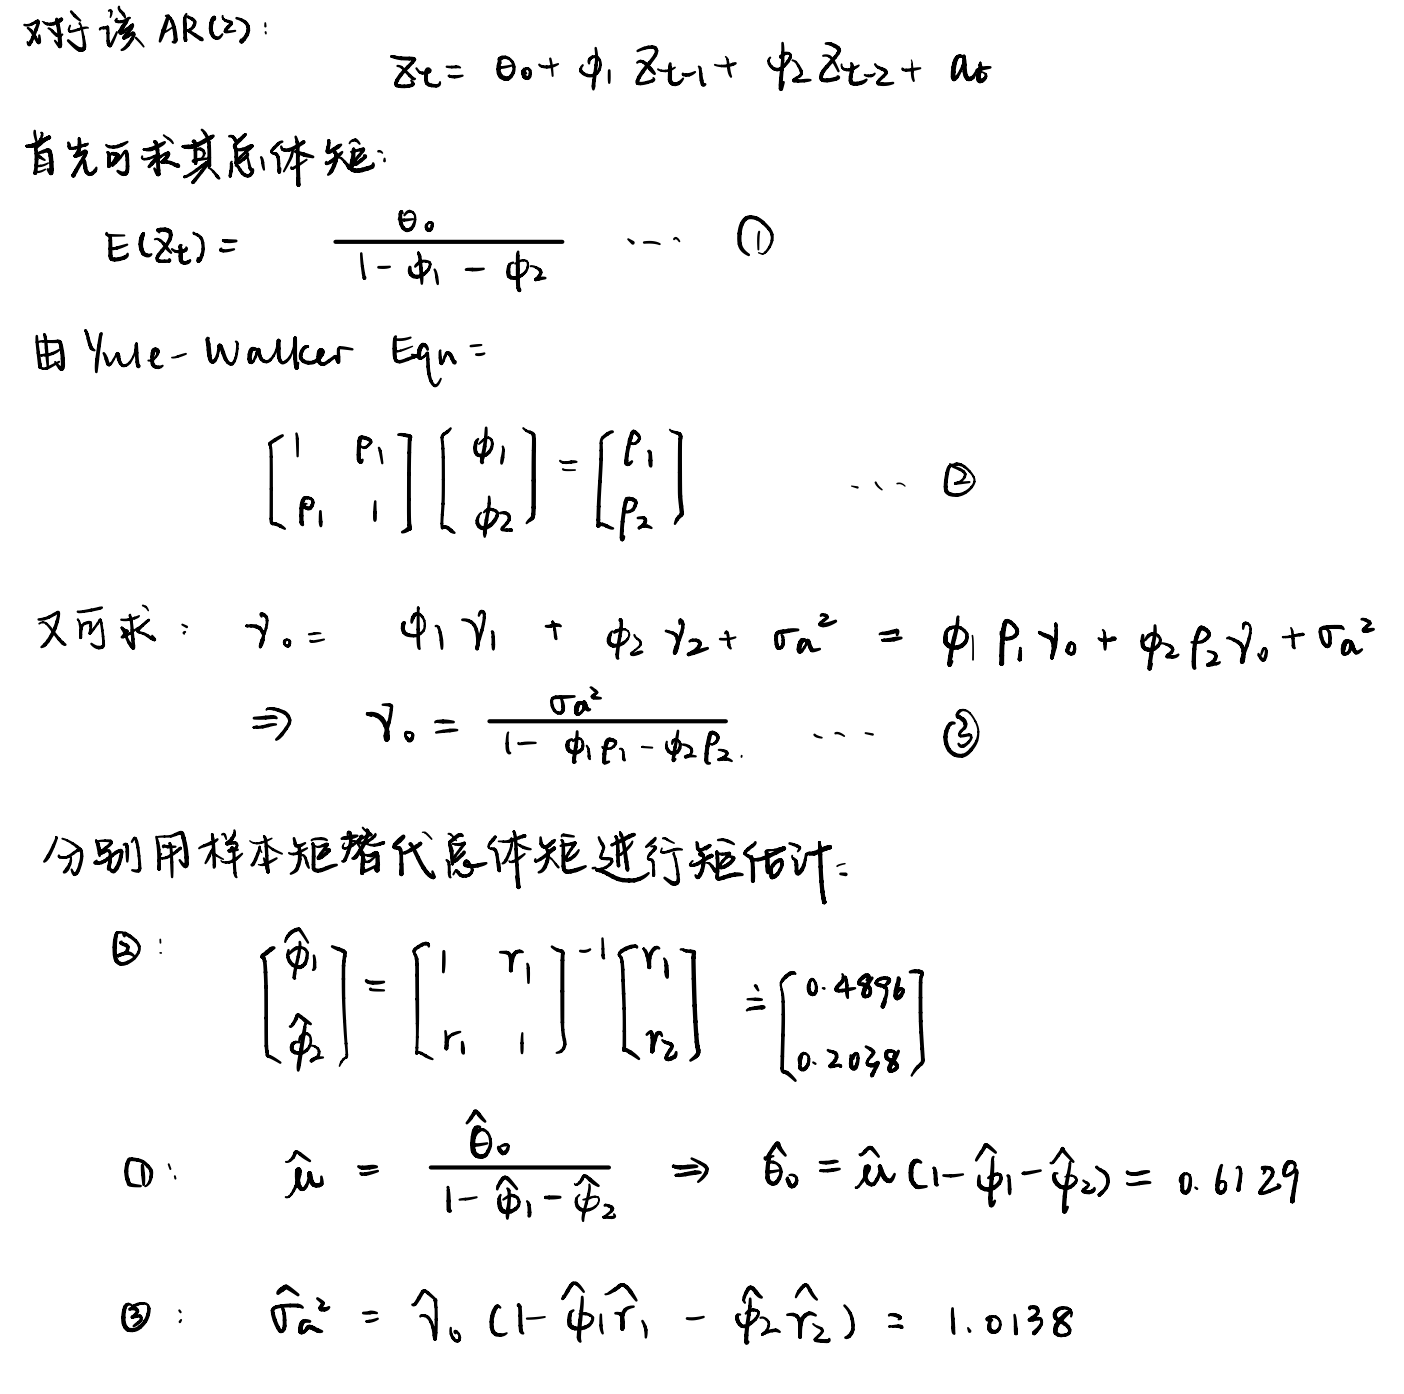 对于该 AR(2):
Zt = θ₀ + ϕ₁ Zt-1 + ϕ₂ Zt-2 + at
首先可求其总体矩:
E(Zt) = θ₀ / (1 - ϕ₁ - ϕ₂) ... ①
由 Yule-Walker Eqn:
[1 ρ₁; ρ₁ 1] [ϕ₁; ϕ₂] = [ρ₁; ρ₂] ... ②
又可求: γ₀ = ϕ₁ γ₁ + ϕ₂ γ₂ + σa² = ϕ₁ ρ₁ γ₀ + ϕ₂ ρ₂ γ₀ + σa²
⇒ γ₀ = σa² / (1 - ϕ₁ρ₁ - ϕ₂ρ₂) ... ③
分别用样本矩替代总体矩进行矩估计:
②: [ϕ̂₁; ϕ̂₂] = [1 r₁; r₁ 1]⁻¹ [r₁; r₂] ≐ [0.4896; 0.2038]
①: μ̂ = θ̂₀ / (1 - ϕ̂₁ - ϕ̂₂) ⇒ θ̂₀ = μ̂ (1 - ϕ̂₁ - ϕ̂₂) = 0.6129
③: σ̂a² = γ̂₀ (1 - ϕ̂₁ r̂₁ - ϕ̂₂ r̂₂) = 1.0138